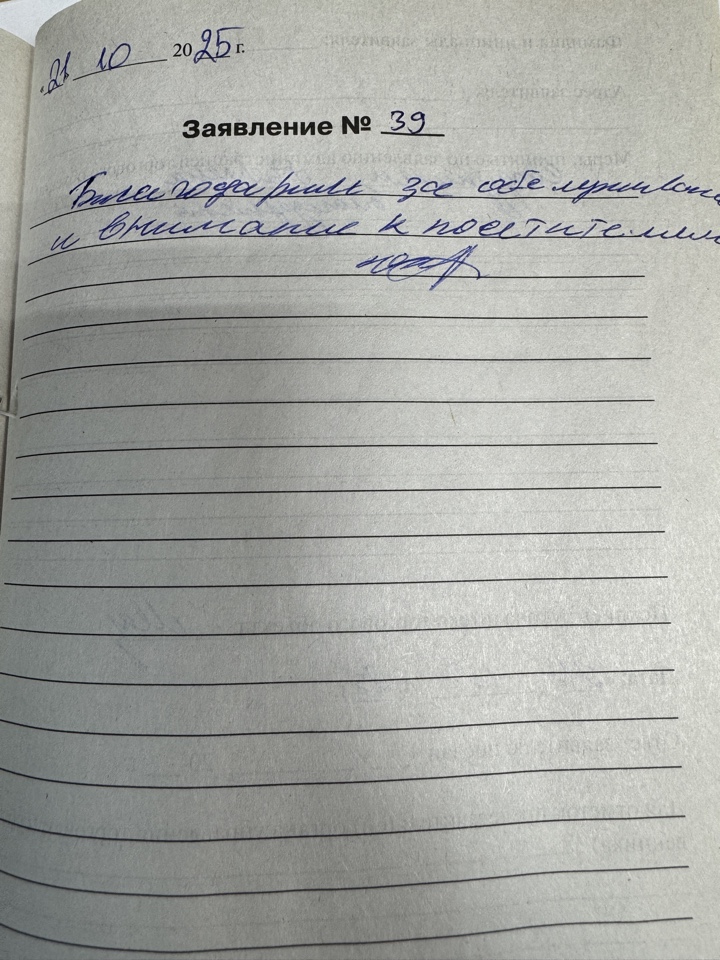 21 10 2025 г.
Заявление № 39
Благодарим за обслуживан
и внимание к посетителям